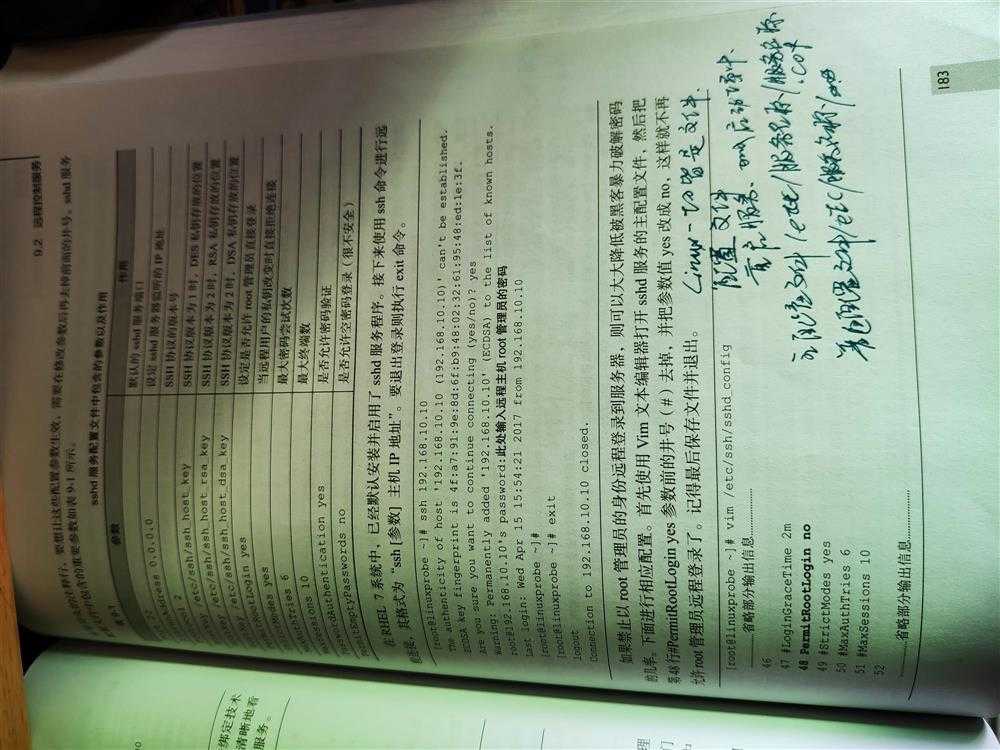 9.2 远程控制服务
的注释行，要想让这些配置参数生效，需要在修改参数后再去掉前面的井号。sshd 服务
中包含的重要参数如表 9-1 所示。
表 9-1 sshd 服务配置文件中包含的参数以及作用
参数 作用
默认的 sshd 服务端口
Address 0.0.0.0 设定 sshd 服务器监听的 IP 地址
2 SSH 协议的版本号
/etc/ssh/ssh_host_key SSH 协议版本为 1 时，DES 私钥存放的位置
/etc/ssh/ssh_host_rsa_key SSH 协议版本为 2 时，RSA 私钥存放的位置
/etc/ssh/ssh_host_dsa_key SSH 协议版本为 2 时，DSA 私钥存放的位置
RootLogin yes 设定是否允许 root 管理员直接登录
Modes yes 当远程用户的私钥改变时直接拒绝连接
AuthTries 6 最大密码尝试次数
Sessions 10 最大终端数
wordAuthentication yes 是否允许密码验证
mitEmptyPasswords no 是否允许空密码登录（很不安全）
在 RHEL 7 系统中，已经默认安装并启用了 sshd 服务程序。接下来使用 ssh 命令进行远
程连接，其格式为“ssh [参数] 主机 IP 地址”。要退出登录则执行 exit 命令。
[root@linuxprobe ~]# ssh 192.168.10.10
The authenticity of host '192.168.10.10 (192.168.10.10)' can't be established.
ECDSA key fingerprint is 4f:a7:91:9e:8d:6f:b9:48:02:32:61:95:48:ed:1e:3f.
Are you sure you want to continue connecting (yes/no)? yes
Warning: Permanently added '192.168.10.10' (ECDSA) to the list of known hosts.
root@192.168.10.10's password:此处输入远程主机 root 管理员的密码
Last login: Wed Apr 15 15:54:21 2017 from 192.168.10.10
[root@linuxprobe ~]#
[root@linuxprobe ~]# exit
logout
Connection to 192.168.10.10 closed.
如果禁止以 root 管理员的身份远程登录到服务器，则可以大大降低被黑客暴力破解密码
的几率。下面进行相应配置。首先使用 Vim 文本编辑器打开 sshd 服务的主配置文件，然后把
第 48 行#PermitRootLogin yes 参数前的井号（#）去掉，并把参数值 yes 改成 no，这样就不再
允许 root 管理员远程登录了。记得最后保存文件并退出。
Linux 一切皆是文件.
[root@linuxprobe ~]# vim /etc/ssh/sshd_config
配置文件
………………省略部分输出信息………………
46
47 #LoginGraceTime 2m
48 PermitRootLogin no
49 #StrictModes yes
50 #MaxAuthTries 6
51 #MaxSessions 10
52
………………省略部分输出信息………………
主配置文件 /etc/服务名称/服务名称.conf
183
绑定技术
清晰地看
服务。